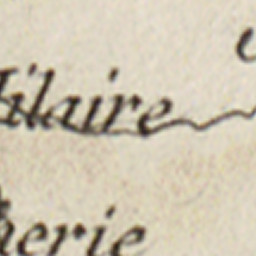 Hilaire
herie